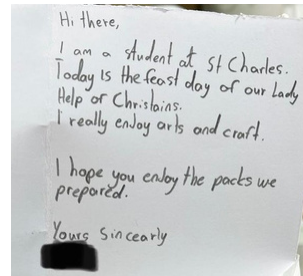 Hi there,
I am a student at St Charles.
Today is the feast day of our Lady
Help of Christains.
I really enjoy arts and craft.
I hope you enjoy the packs we
prepared.
Yours Sincearly